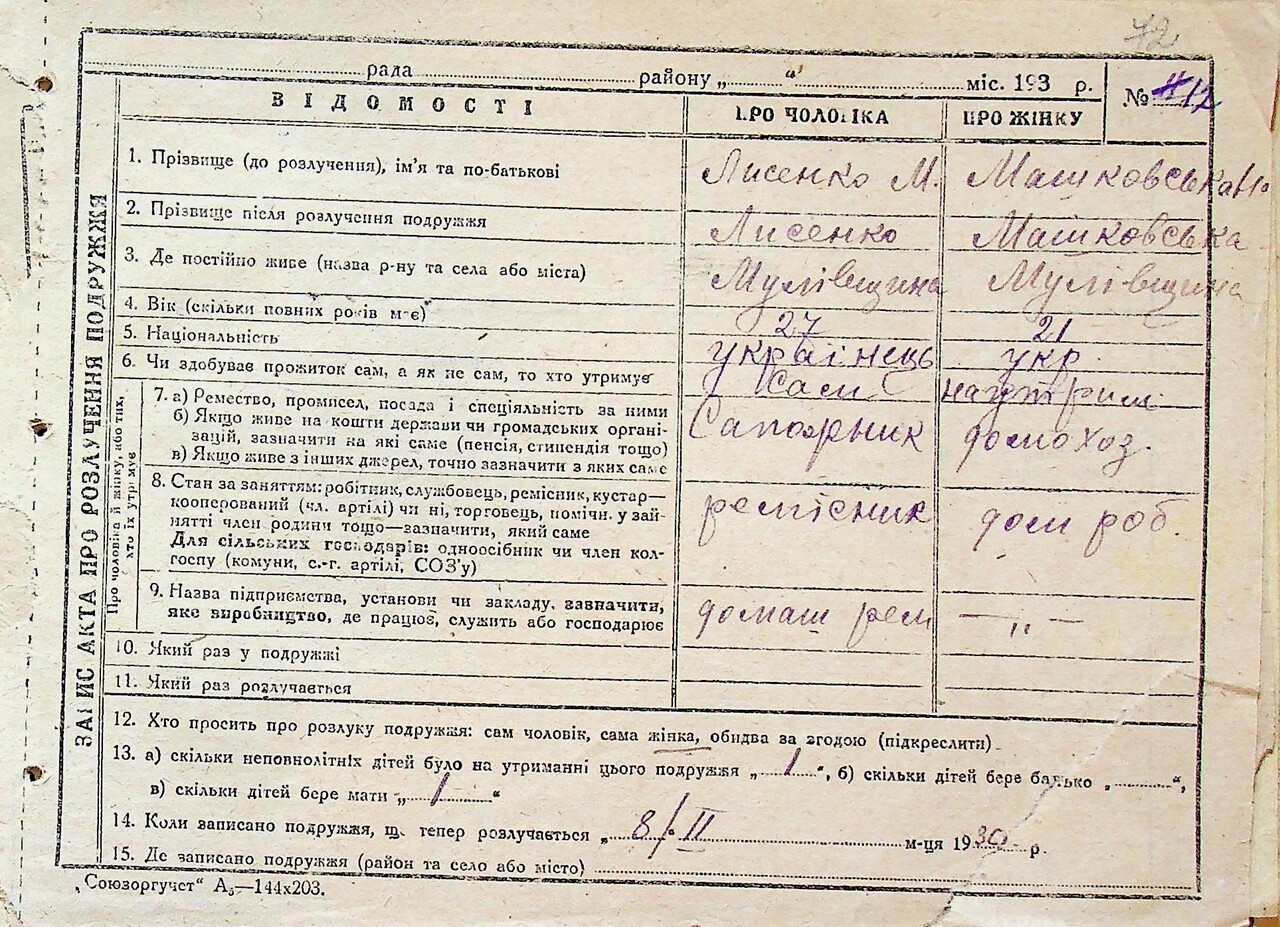 42
рада района „ “ міс. 193 р.
№ 12
ВІДОМОСТІ ПРО ЧОЛОВІКА ПРО ЖІНКУ
ЗАПИС АКТА ПРО РОЗЛУЧЕННЯ ПОДРУЖЖЯ
1. Прізвище (до розлучення), ім'я та по-батькові Лисенко М. Машковська
2. Прізвище після розлучення подружжя Лисенко Машковська
3. Де постійно живе (назва р-ну та села або міста) Мулівщина Мулівщина
4. Вік (скільки повних років має) 27 21
5. Національність українець укр.
6. Чи здобуває прожиток сам, а як не сам, то хто утримує Сам на утрим.
Про чоловіка й жінку, або тих,
хто їх утримує
7. а) Ремество, промисел, посада і спеціяльність за ними
б) Якщо живе на кошти держави чи громадських органі-
зацій, зазначити на які саме (пенсія, стипендія тощо) Сапожник домохоз.
в) Якщо живе з інших джерел, точно зазначити з яких саме
8. Стан за заняттям: робітник, службовець, ремісник, кустар—
кооперований (чл. артілі) чи ні, торговець, помічн. у зай- ремісник дом роб.
нятті член родини тощо—зазначити, який саме
Для сільських господарів: одноосібник чи член кол-
госпу (комуни, с.-г. артілі, СОЗ'у)
9. Назва підприємства, установи чи закладу, зазначити,
яке виробництво, де працює, служить або господарює домаш рем — „ —
10. Який раз у подружжі
11. Який раз розлучається
12. Хто просить про розлуку подружжя: сам чоловік, сама жінка, обидва за згодою (підкреслити)
13. а) скільки неповнолітніх дітей було на утриманні цього подружжя „ 1 “, б) скільки дітей бере батько „ “,
в) скільки дітей бере мати „ 1 “
14. Коли записано подружжя, що тепер розлучається „ 8/II м-ця 1930 р.
15. Де записано подружжя (район та село або місто)
„Союзоргучет“ А₅—144х203.